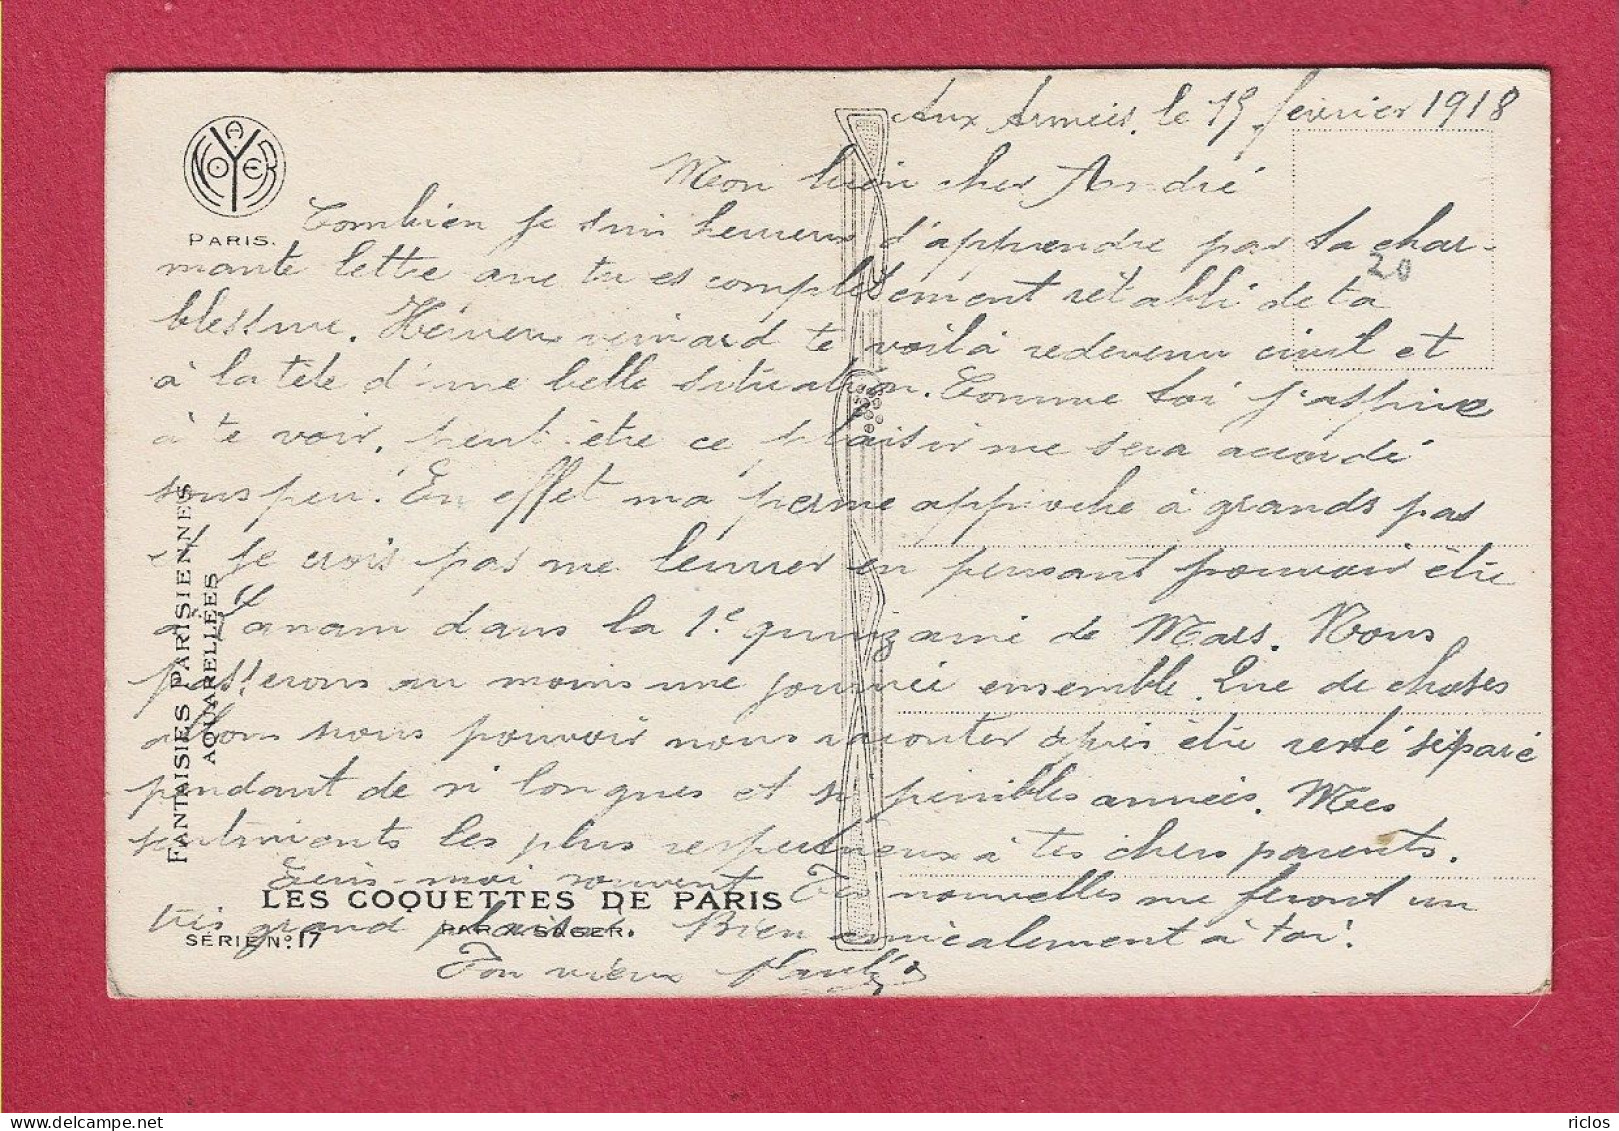 Aux Armées, le 19 février 1918
Mon bien cher André
Combien je suis heureux d'apprendre par ta char-
mante lettre que tu es complètement rétabli de ta
blessure. Heureux veinard te voilà redevenu civil et
à la tête d'une belle situation. Comme toi j'aspire
à te voir, peut-être ce plaisir me sera accordé
sous peu. En effet ma perme approche à grands pas
et je crois pas me leurrer en pensant pouvoir être
à Lanam dans la 1e quinzaine de Mars. Nous
passerons au moins une journée ensemble. Que de choses
allons nous pouvoir nous raconter après être resté séparé
pendant de si longues et si pénibles années. Mes
sentiments les plus respectueux à tes chers parents.
Ecris-moi souvent. Tes nouvelles me feront un
très grand plaisir. Bien amicalement à toi.
Ton vieux
20
NOYER
A
PARIS.
FANTAISIES PARISIENNES
AQUARELLEES
LES COQUETTES DE PARIS
PAR X. SAGER.
SÉRIE No. 17
delcampe.net
riclos